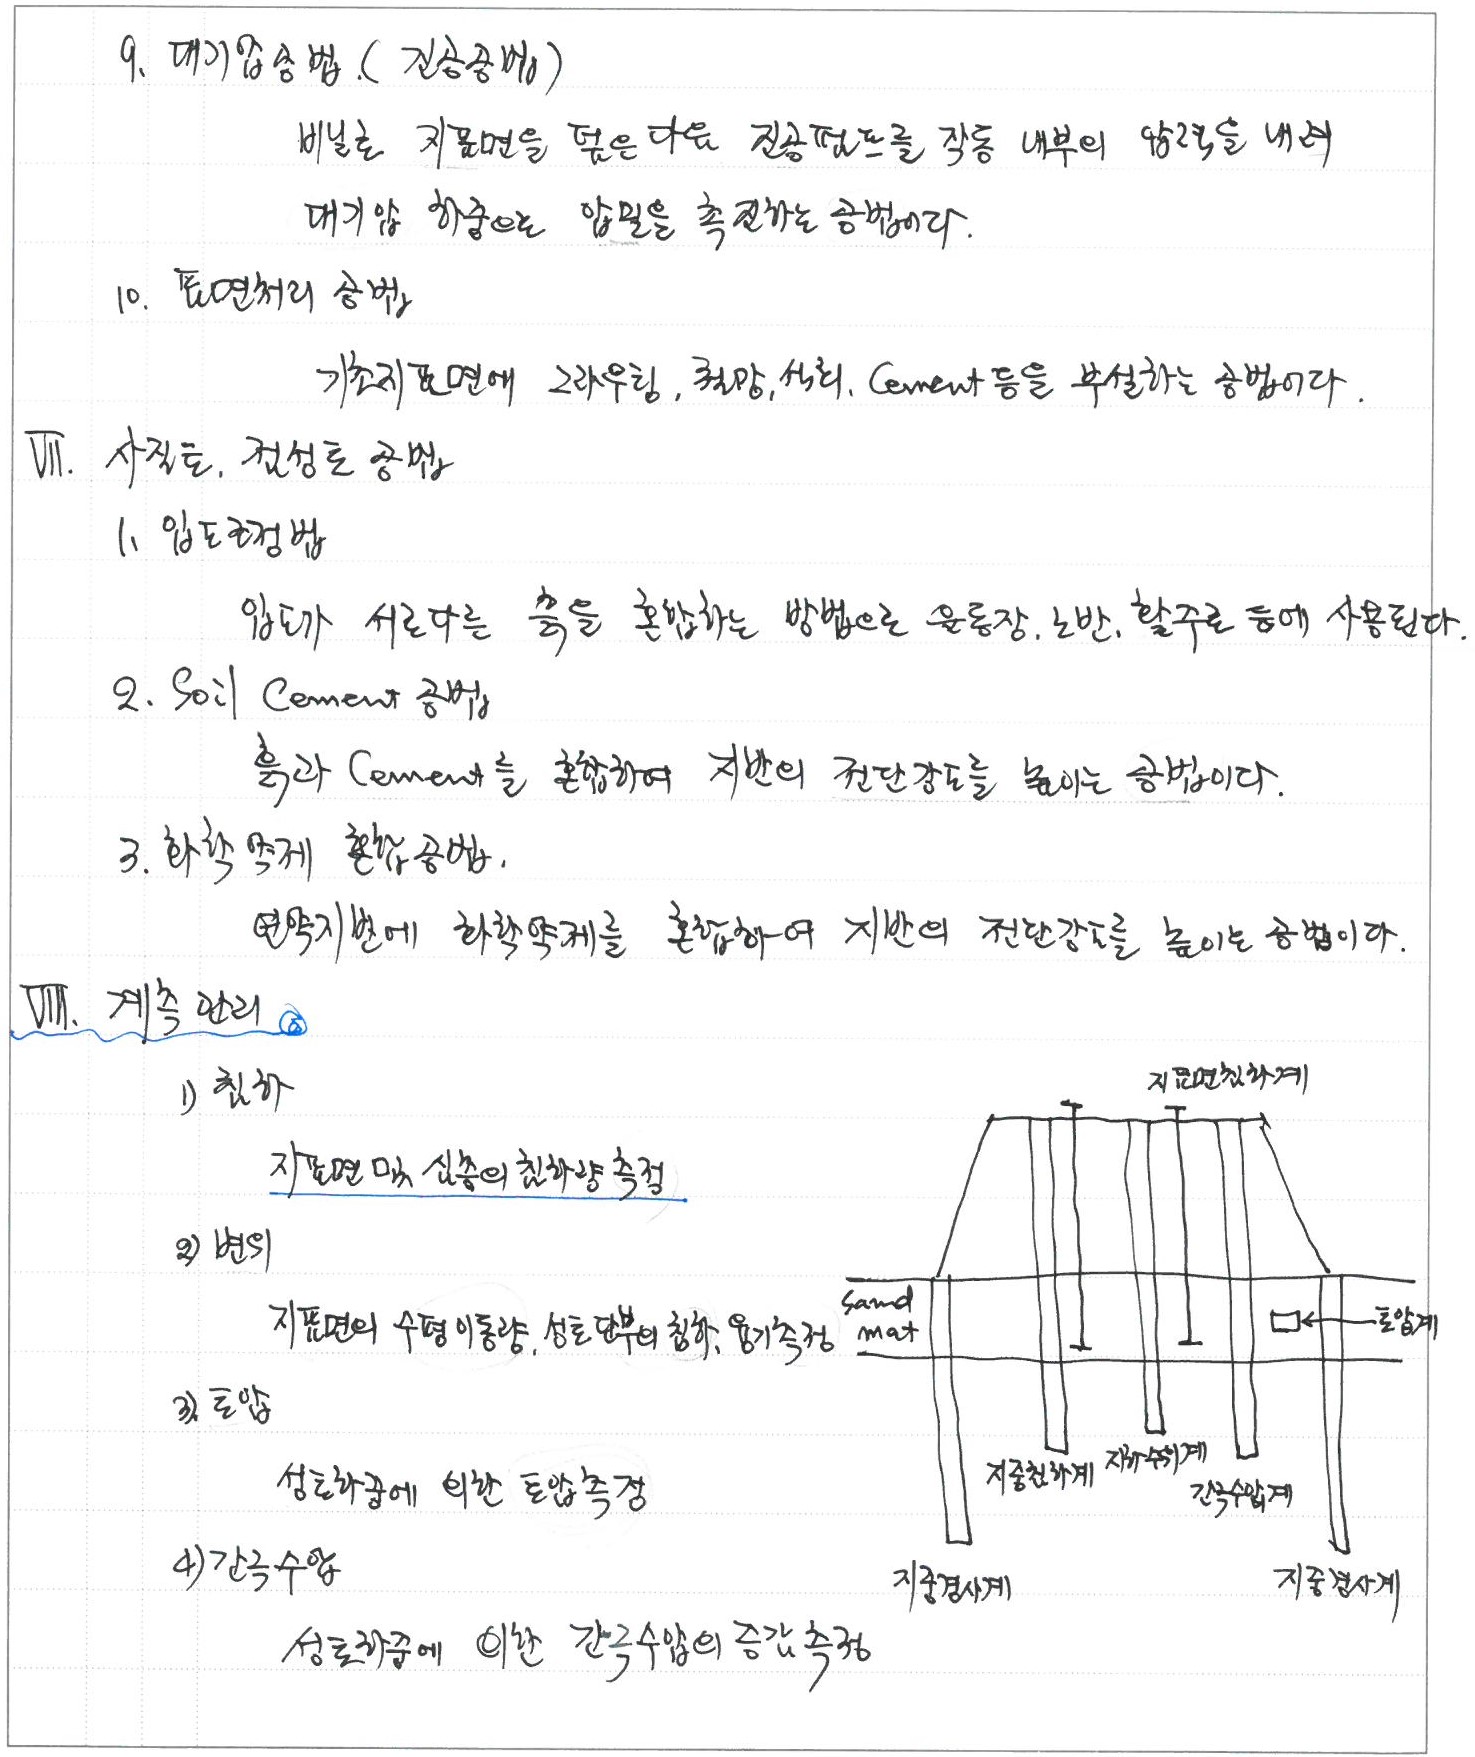 9. 대기압공법.(진공공법)
비닐로 지표면을 덮은 다음 진공펌프를 작동 내부의 압력을 내려
대기압 하중으로 압밀을 촉진하는 공법이다.
10. 표면처리 공법
기초지표면에 그라우팅, 철망, 석회, Cement 등을 부설하는 공법이다.
VII. 사질토, 점성토 공법
1. 입도조정법
입도가 서로다른 흙을 혼합하는 방법으로 운동장, 노반, 활주로 등에 사용된다.
2. Soil Cement 공법
흙과 Cement를 혼합하여 지반의 전단강도를 높이는 공법이다.
3. 화학약제 혼합공법.
연약지반에 화학약제를 혼합하여 지반의 전단강도를 높이는 공법이다.
VIII. 계측관리
1) 침하
지표면 및 심층의 침하량 측정
2) 변위
지표면의 수평이동량, 성토단부의 침하, 융기측정
3) 토압
성토하중에 의한 토압측정
4) 간극수압
성토하중에 의한 간극수압의 증감측정
지표면침하계
Sand
mat
토압계
지중침하계
지하수위계
간극수압계
지중경사계
지중경사계